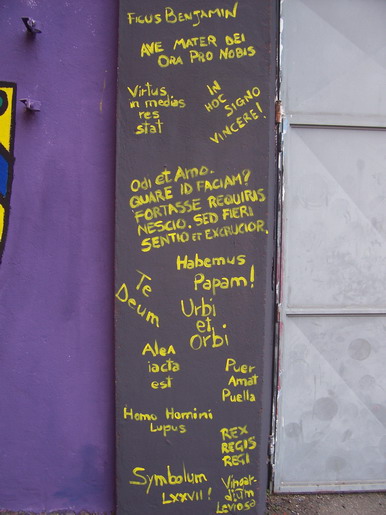 Ficus Benjamin
AVE MATER DEI
ORA PRO NOBIS
Virtus
in medias
res
stat
IN
HOC
SIGNO
VINCERE!
Odi et Amo.
QUARE ID FACIAM?
FORTASSE REQUIRIS
NESCIO. SED FIERI
SENTIO ET EXCRUCIOR.
Habemus
Papam!
Te
Deum
Urbi
et
Orbi
Alea
iacta
est
Puer
Amat
Puella
Homo Homini
Lupus
REX
REGIS
REGI
Symbolum
LXXVII!
Vingar
dium
Leviosa